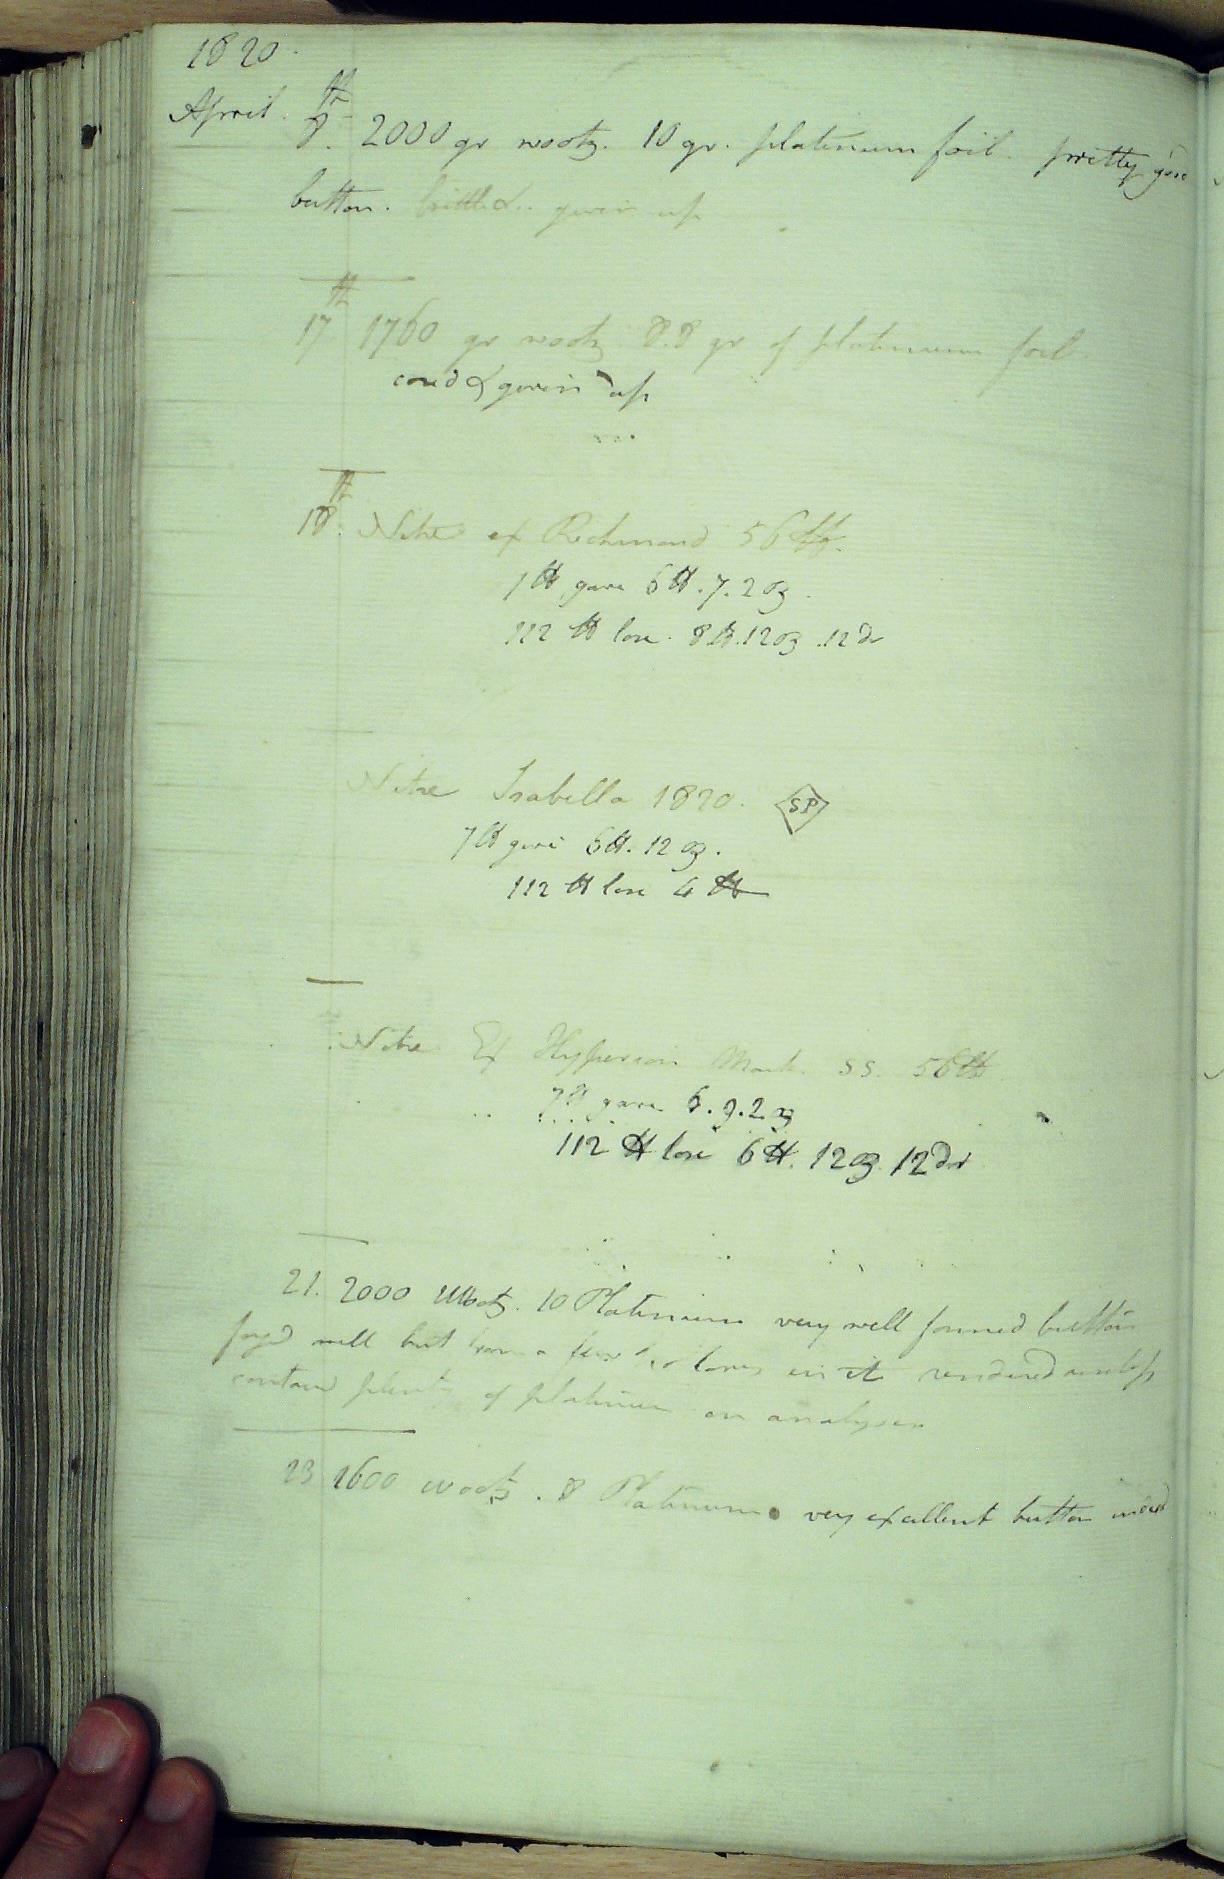 1820.
April. 8th. 2000 gr wootz. 10 gr. platinum foil. pretty good
button. brittle & given up
17th 1760 gr wootz 8.8 gr of platinum foil
& given up
18th. Nitre ex Richmond 56 lb.
7 lb gave 6 lb. 7. 2 oz.
112 lb lose. 8 lb. 12 oz. 12 dr
Nitre Isabella 1820. SP
7 lb gave 6 lb. 12 oz.
112 lb lose 4 lb
Nitre Ex Hyperion Mark. SS. 56 lb
7 lb gave 6. 9. 2 oz
112 lb lose 6 lb. 12 oz 12 dr
21. 2000 Wootz. 10 Platinum very well formed button
forged well but from a few in it rendered useless
contain plenty of platinum on analysis
23 1600 wootz. 8 Platinum very excellent button indeed